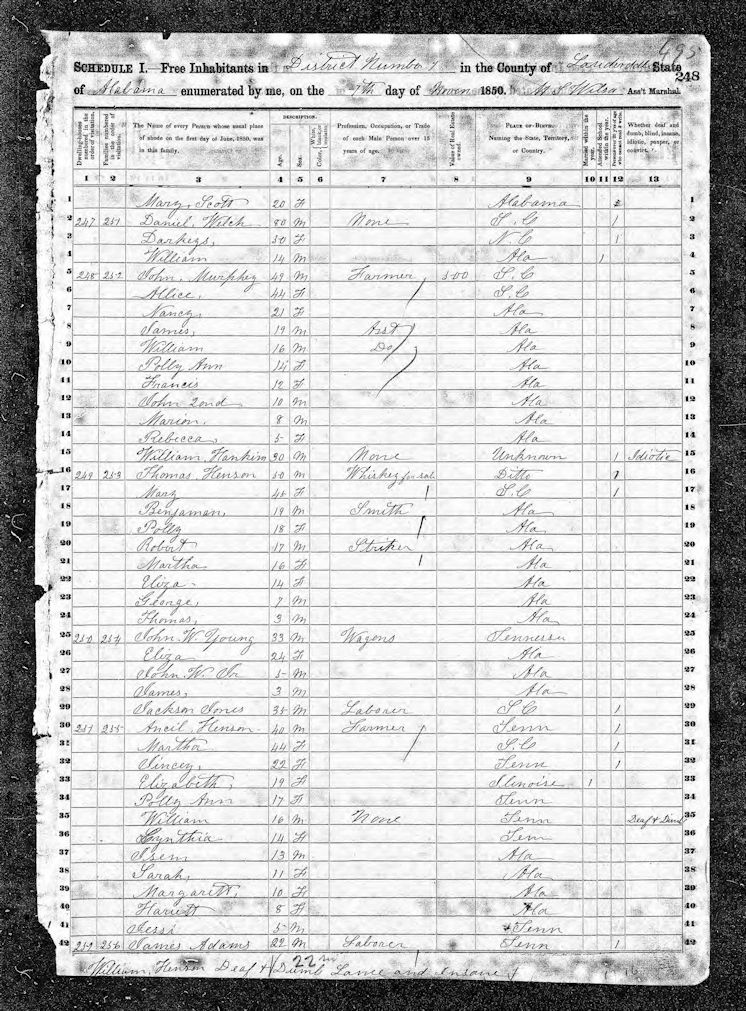 495
SCHEDULE I.—Free Inhabitants in District Number 7 in the County of Lauderdale State
248
of Alabama enumerated by me, on the 7th day of Novem 1850. Ass't Marshal.
Dwelling-houses numbered in the order of visitation. Families numbered in the order of visitation. The Name of every Person whose usual place of abode on the first day of June, 1850, was in this family. DESCRIPTION. Age. Sex. Color, Profession, Occupation, or Trade of each Male Person over 15 years of age. Value of Real Estate owned. PLACE OF BIRTH. Naming the State, Territory, or Country. Married within the year. Attended School within the year. Whether deaf and dumb, blind, insane, idiotic, pauper, or convict.
1 2 3 4 5 6 7 8 9 10 11 12 13
1 Mary, Scott 20 F Alabama 1
2 247 251 Daniel, Welch 80 M None S. C 1 2
3 Darkeys, 50 F N C 1 3
4 William 14 M Ala 1 4
5 248 252 John, Murphey 49 M Farmer 500 S. C 5
6 Allice, 44 F S. C 6
7 Nancy, 21 F Ala 7
8 James, 19 M Asst Ala 8
9 William 16 M Do Ala 9
10 Polly Ann 14 F Ala 10
11 Francis 12 F Ala 11
12 John 2ond 10 M Ala 12
13 Marion, 8 M Ala 13
14 Rebecca, 5 F Ala 14
15 William, Hankins 30 M None Unknown 1 Idiotic 15
16 249 253 Thomas, Henson 50 M Whiskey for sale Ditto 1 16
17 Mary 45 F S. C 1 17
18 Benjaman, 19 M Smith Ala 18
19 Polly 18 F Ala 19
20 Robert 17 M Striker Ala 20
21 Martha 16 F Ala 21
22 Eliza 14 F Ala 22
23 George, 7 M Ala 23
24 Thomas, 3 M Ala 24
25 250 254 John W. Young 33 M Wagons Tennessee 25
26 Eliza 24 F Ala 26
27 John W. Jr 5 M Ala 27
28 James, 3 M Ala 28
29 Jackson Jones 35 M Laborer S. C 1 29
30 251 255 Ancil Henson 40 M Farmer Tenn 1 30
31 Martha 44 F S. C 1 31
32 Sincey, 22 F Tenn 1 32
33 Elizabeth, 19 F Ilinoise 1 33
34 Polly Ann 17 F Tenn 34
35 William 16 M None Tenn Deaf & Dumb 35
36 Cynthia 14 F Tenn 36
37 Isem 13 M Ala 37
38 Sarah, 11 F Ala 38
39 Margarett, 10 F Ala 39
40 Hariett 8 F Ala 40
41 Jessi 5 M Tenn 41
42 252 256 James Adams 22 M Laborer Tenn 1 42
William, Henson Deaf & Dumb Lame and Insane
22 m